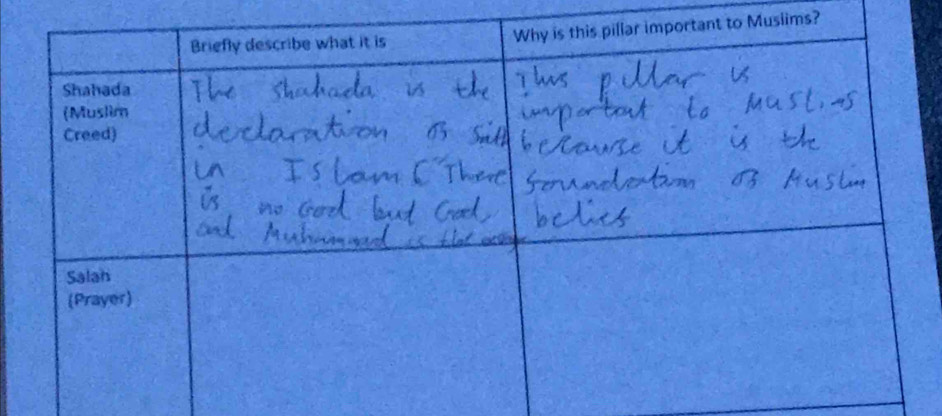 Briefly describe what it is
Why is this pillar important to Muslims?
Shahada
(Muslim
Creed)
The Shahada is the
declaration of faith
in Islam ("There
is no God but God,
and Muhammad is the
This pillar is
important to Muslims
because it is the
foundation of Muslim
belief
Salah
(Prayer)